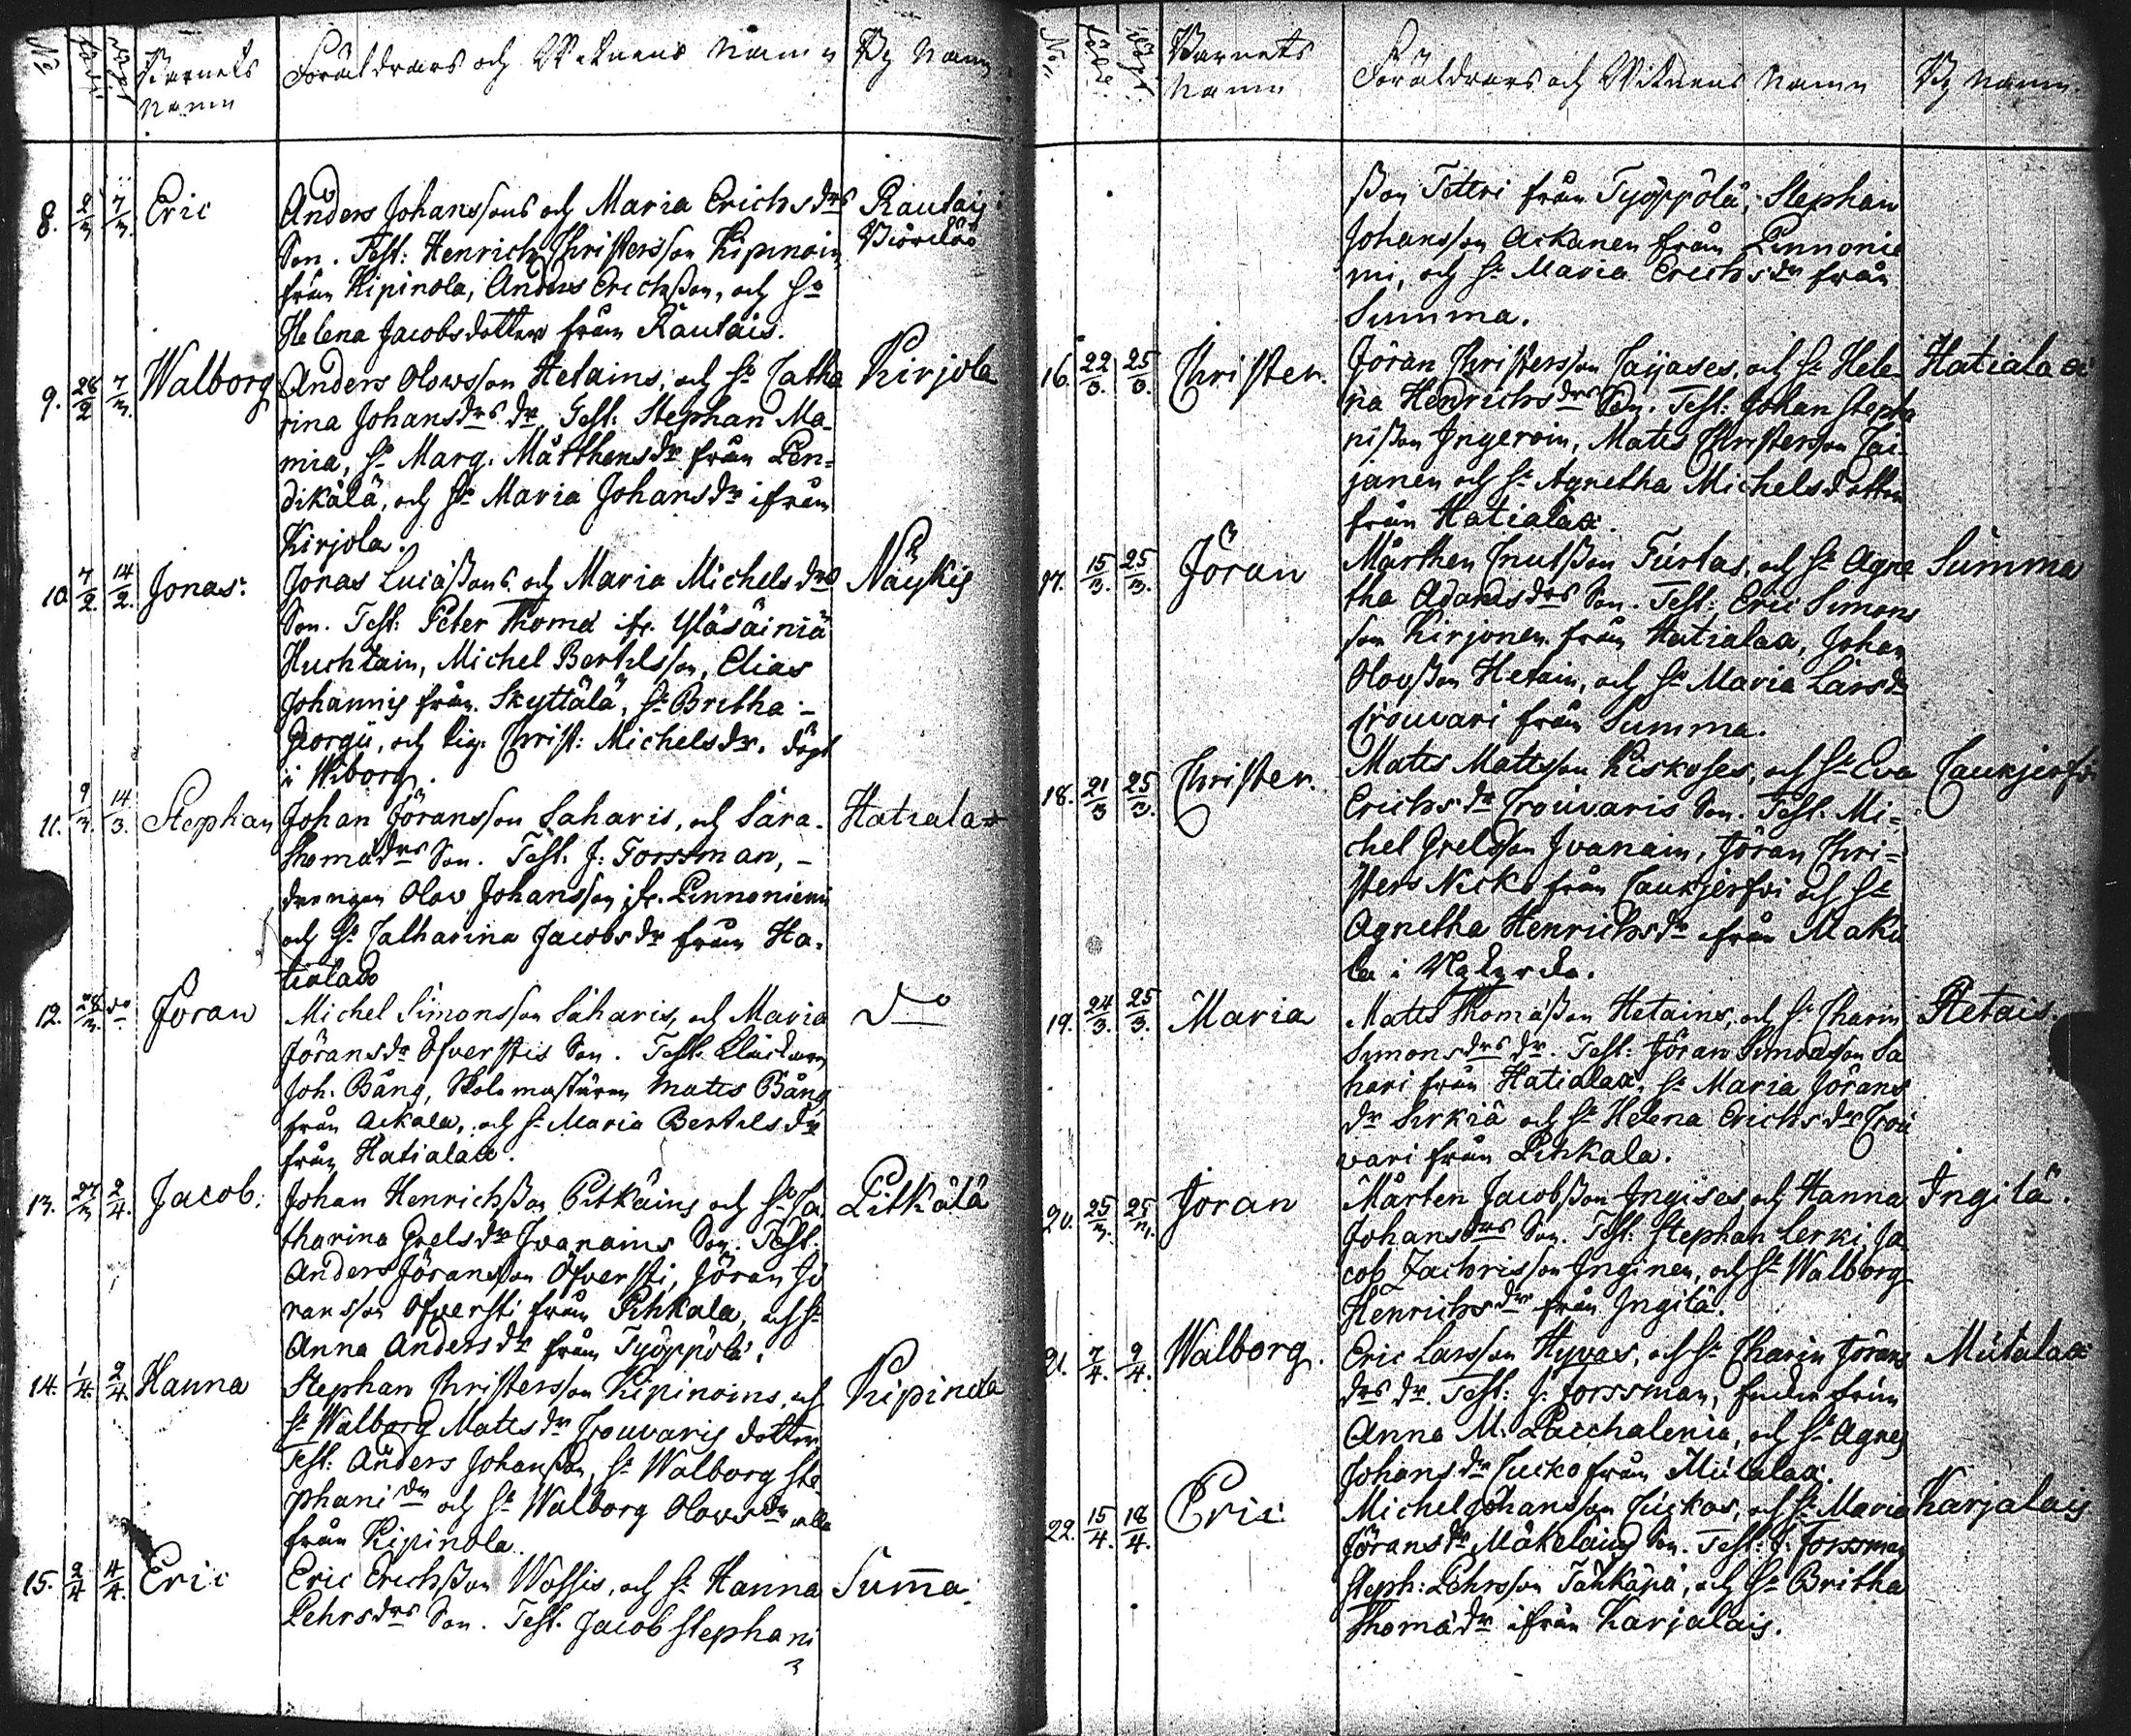 No född döpt Barnets Föräldrars och Witnens Namn By Namn
Namn
8. 2/3 7/3 Eric Anders Johanssons och Maria Erichsdrs Rautais i
Son. Test: Henrich Christersson Kipinoin
från Kipinola, Anders Erichsson, och h:o
Helena Jacobsdotter från Rautais.
9. 28/2 7/3 Walborg Anders Olowsson Hetains, och h: Catha Kirjola
rina Johansdrs dr Test: Stephan Ma-
mia, h: Marg. Mårthensdr från Pen-
dikälä, och h: Maria Johansdr ifrån
Kirjola.
10. 7/2 14/2 Jonas. Jonas Lucæssons och Maria Michelsdrs Näykis
Son. Test: Peter Thomæ ifr. Yläsäiniä
Huchtain, Michel Bertilsson, Elias
Johannis från Skyttälä, h: Britha -
Georgii, och pig. Christ: Michelsdr. döpt
i Wiborg.
11. 9/3 14/3 Stephan Johan Jöransson Saharis, och Sara Hatiala
Thomædrs Son. Test. J: Forssman, -
drengen Olov Johansson ifr. Pinnoniemi
och h: Catharina Jacobsdr från Ha-
tialax
12. 28/3 do Jöran Michel Simonsson Saharis, och Maria do
Jöransdr Öfverstis Son. Test. Klåckaren
Joh. Bång, Skolemästaren Mats Bång
från Ackala, och h: Maria Bertilsdr
från Hatialax.
13. 27/3 2/4 Jacob. Johan Henrichsson Pitkäins och h: Ca Pitkälä
tharina Grelsdr Ivanains Son. Test.
Anders Jöransson Öfversti, Jöran Jö
ransson Öfversti från Pihkala, och h:
Anna Andersdr från Työppölä.
14. 1/4 2/4 Hanna Stephan Christersson Kipinoins, och Kipinola
h: Walborg Matsdr Trouvaris dotter
Test: Anders Johansson, h: Walborg Ste
phanidr och h: Walborg Olovsdr alla
från Kipinola.
15. 2/4 4/4 Eric Eric Erichsson Wossis, och h: Hanna Suma.
Pehrsdrs Son. Test. Jacob Stephani
No. född. döpt. Barnets Föräldrars och Witnens Namn By Namn.
Namn
sson Teteri från Työppölä, Stephan
Johansson Ackanen från Pinnonie
mi, och h: Maria Erichsdr från
Summa.
16. 22/3. 25/3. Christer. Jöran Christersson Caijases, och h: Hele Hatialax
na Henrichsdrs Son. Test: Johan Stepha
nisson Ingeroin, Mats Christersson Cai
janen och h: Agnetha Michelsdotter
från Hatialax.
17. 15/3. 25/3. Jöran Mårthen Cnutsson Turtas, och h: Agne Summa
tha Adamsdrs Son. Test: Eric Simons
son Kirjonen från Hatialax, Johan
Olovsson Hetain, och h: Maria Larsdr
Trouvari från Summa.
18. 21/3 25/3. Christer. Mats Matsson Kiskoses, och h: Eva Caukjerfvi
Erichsdr Trouvaris Son. Test. Mi-
chel Grelsson Ivanain, Jöran Chri-
sters Nicko från Caukjerfvi och h:
Agnetha Henrichsdr ifrån Maku
la i Nykyrka.
19. 24/3. 25/3. Maria Mats Thomæsson Hetains, och h: Charin Hetais.
Simonsdrs dr. Test: Jöran Simonsson Sa
hari från Hatialax, h: Maria Jörans
dr Sirkiä och h: Helena Erichsdr Trou
vari från Pihkala.
20. 25/3. 25/3. Jöran Mårten Jacobsson Ingises, och Hanna Ingilä.
Johansdrs Son. Test: Stephan Lerki, Ja
cob Zachrisson Inginen, och h: Walborg
Henrichsdr från Ingilä.
21. 7/4. 9/4. Walborg. Eric Larsson Hyvas, och h: Charin Jörans Mutalax
drs dr. Test: J. Forssman,
Anna M. Pacchalenia, och h: Agnes
Johansdr Cucko från Mutalax.
22. 15/4. 18/4. Eric Michel Johansson Cuckos, och h: Maria Karjalais
Jöransdr Mäkelains Son. Test: J. Forssman
Steph: Pehrsson Tahkäpä, och h: Britha
Thomædr ifrån Karjalais.